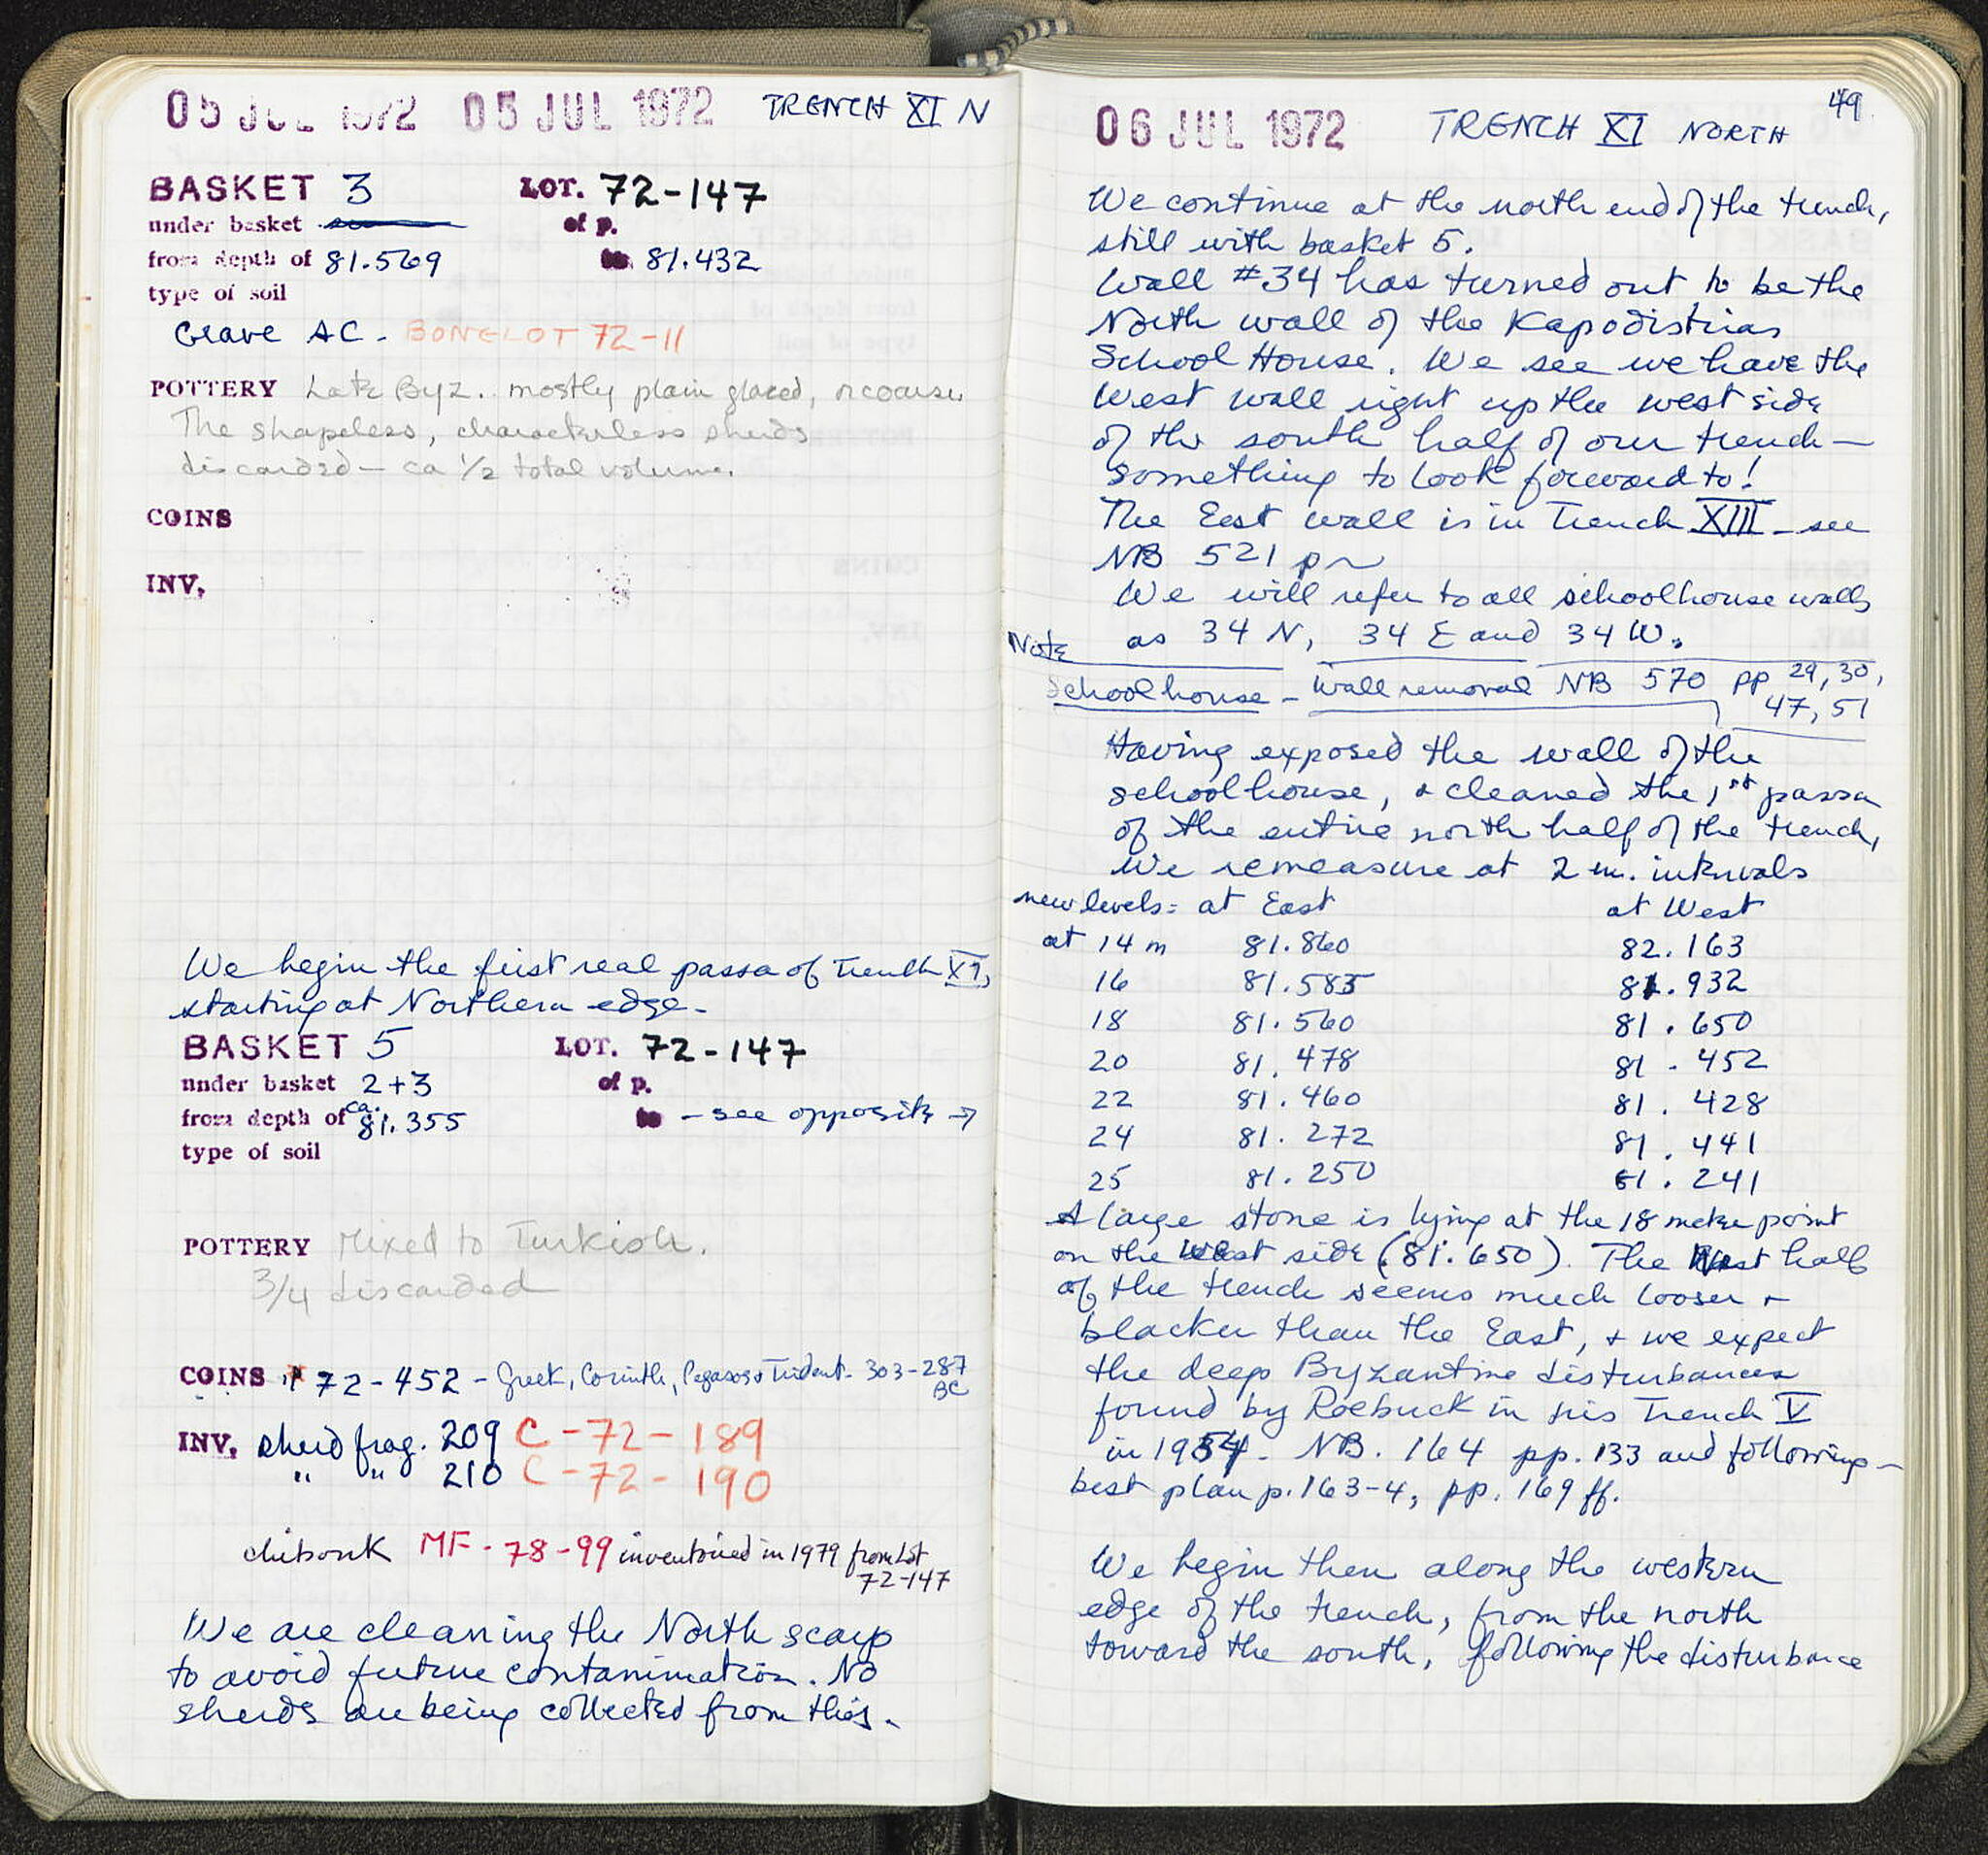 05 JUL 1972 05 JUL 1972 TRENCH XI N
BASKET 3 LOT. 72-147
under basket of p.
from depth of 81.569 to 81.432
type of soil
Grave AC - BONE LOT 72-11
POTTERY Late Byz. mostly plain glazed, + coarse.
The shapeless, characterless sherds
discarded - ca 1/2 total volume.
COINS
INV.
We begin the first real passa of Trench XI,
starting at Northern edge -
BASKET 5 LOT. 72-147
under basket 2+3 of p.
from depth of ca. 81.355 to - see opposite →
type of soil
POTTERY Mixed to Turkish.
3/4 discarded
COINS 72-452 - Greek, Corinth, Pegasos + Trident - 303-287
BC
INV. sherd frag. 209 C-72-189
" " 210 C-72-190
chibouk MF-78-99 inventoried in 1979 from Lot
72-147
We are cleaning the North scarp
to avoid future contamination. No
sherds are being collected from this.
49
06 JUL 1972 TRENCH XI NORTH
We continue at the north end of the trench,
still with basket 5.
Wall #34 has turned out to be the
North wall of the Kapodistrias
School House. We see we have the
West wall right up the west side
of the south half of our trench -
something to look forward to!
The East wall is in Trench XIII - see
NB 521 p~
We will refer to all schoolhouse walls
as 34 N, 34 E and 34 W.
Note
Schoolhouse - Wall removal NB 570 pp 29, 30,
47, 51
Having exposed the wall of the
schoolhouse, + cleaned the 1st passa
of the entire north half of the trench,
we remeasure at 2 m. intervals
new levels: at East at West
at 14 m 81.860 82.163
16 81.585 81.932
18 81.560 81.650
20 81.478 81.452
22 81.460 81.428
24 81.272 81.441
25 81.250 81.241
A large stone is lying at the 18 meter point
on the west side (81.650). The West half
of the trench seems much looser +
blacker than the East, + we expect
the deep Byzantine disturbances
found by Roebuck in his Trench V
in 1954 - NB. 164 pp. 133 and following -
best plan p. 163-4, pp. 169 ff.
We begin then along the western
edge of the trench, from the north
toward the south, following the disturbance